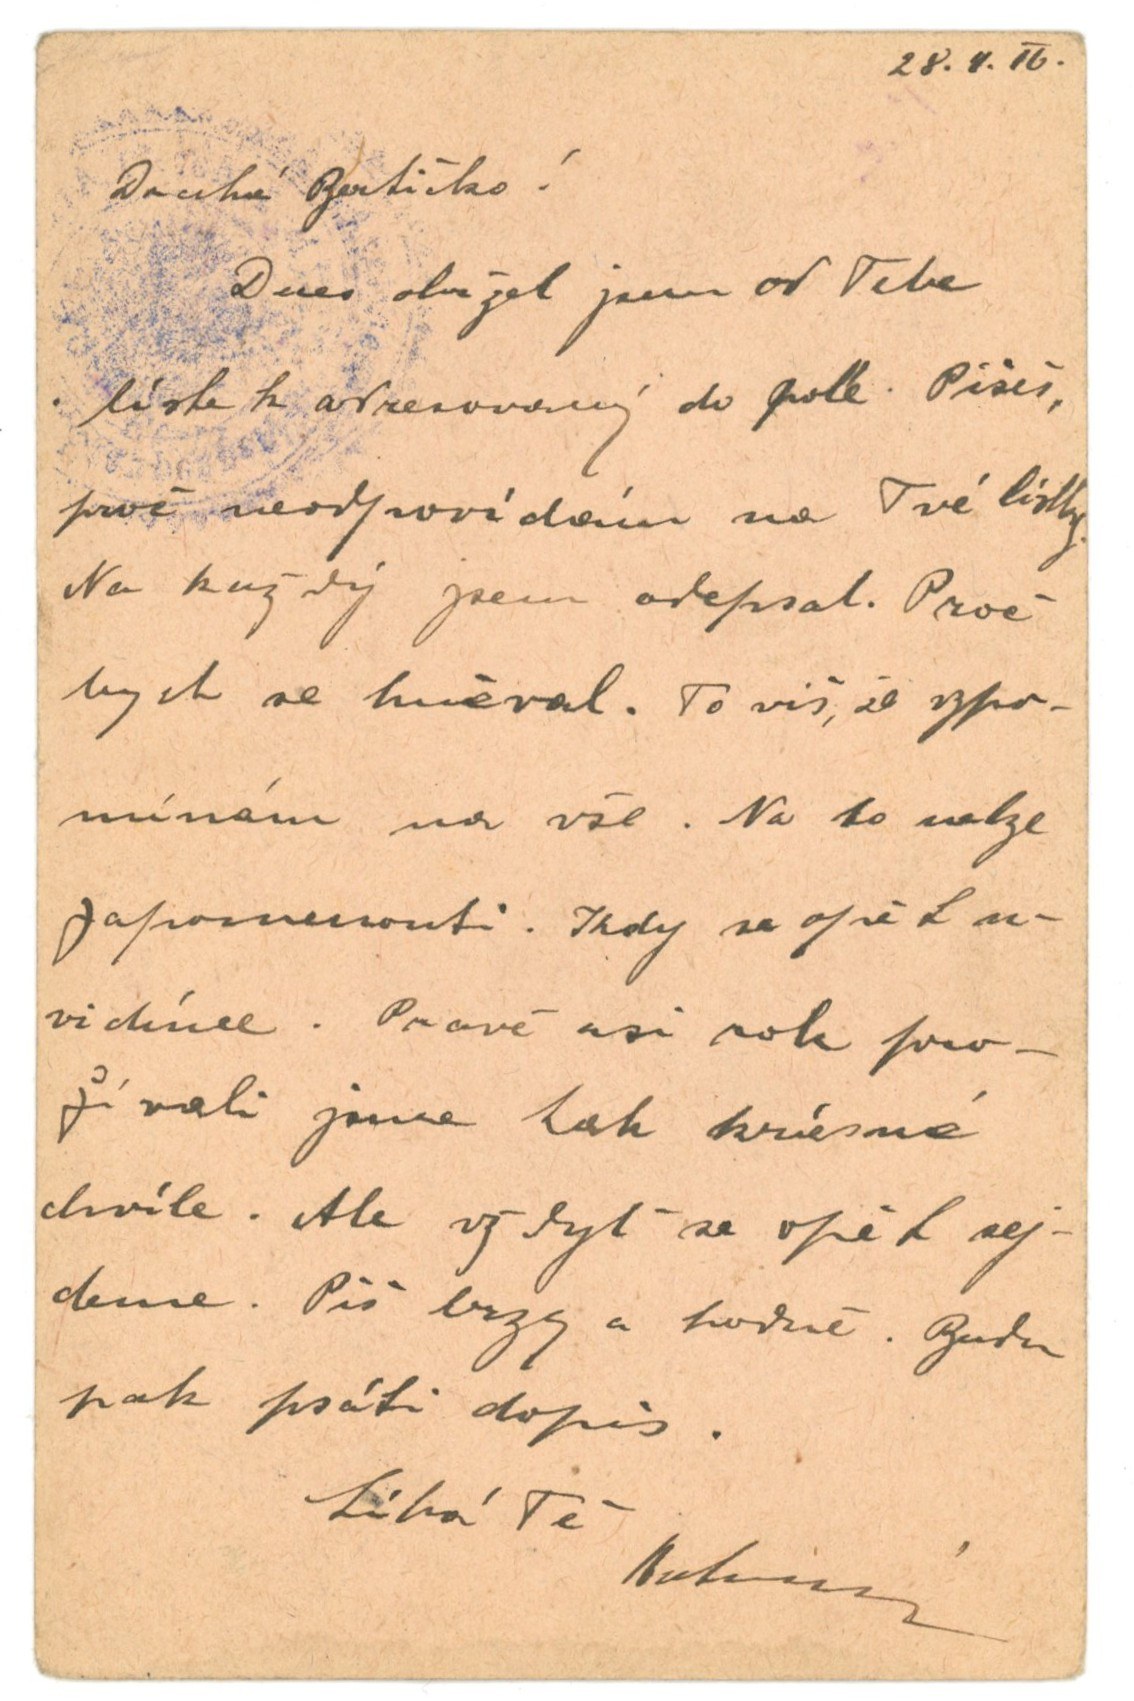 28. 4. 16.
Drahá Bertičko!
Dnes obržel jsem od Tebe
lístek adresovaný do pole. Píšeš,
proč neodpovídám na Tvé lístky.
Na každý jsem odepsal. Proč
bych se hněval. To víš, že vzpo-
mínám na vše. Na to nelze
zapomenouti. Kdy se opět u-
vidíme. Pravě asi rok pro-
žívali jsme tak krásné
chvíle. Ale vždyť se opět sej-
deme. Piš brzy a hodně. Budu
pak psáti dopis.
Líbá Tě